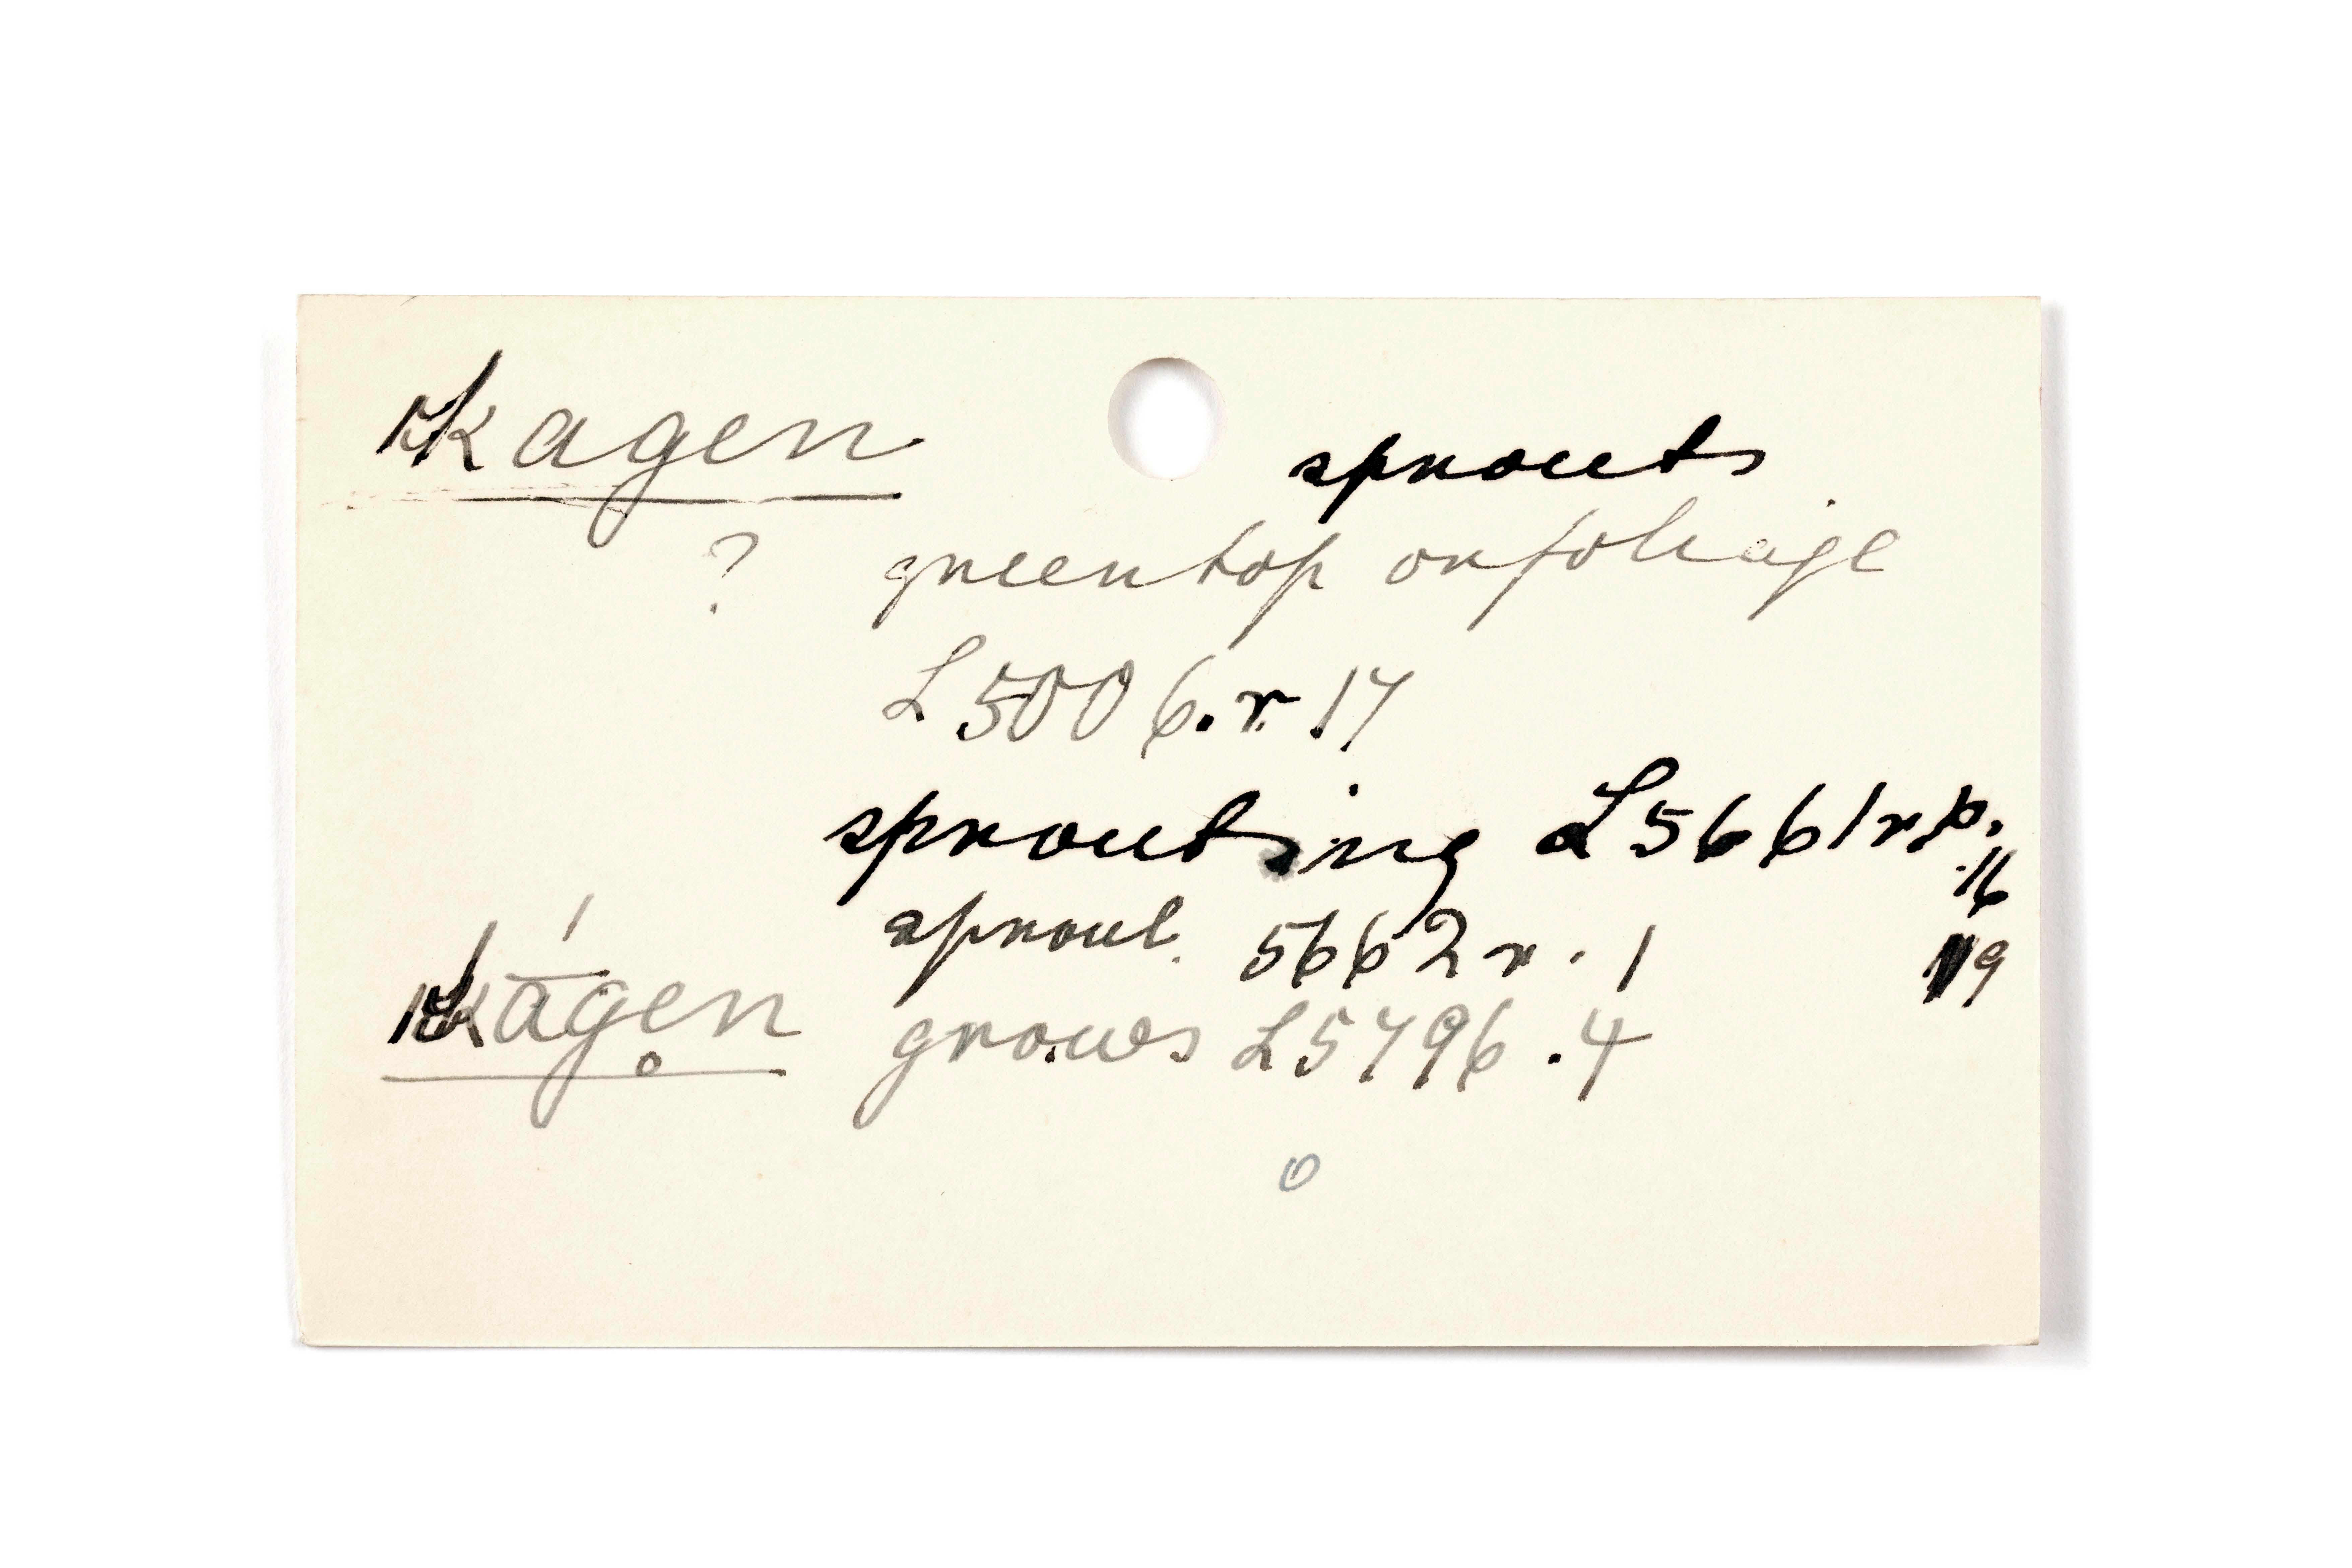 kagen
sprouts
? green top or foliage
L5006.r 17
sprouting L5661 r p.
.16
sprout. 5662 r. 1 19
kā́gen̥ grows L5796.4
o